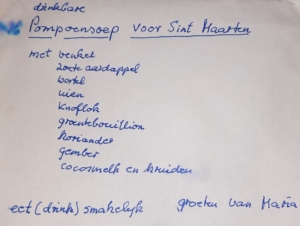 drinkbare
Pompoensoep voor Sint Maarten
met venkel
zoete aardappel
wortel
uien
knoflok
groentebouillion
koriander
gember
cocosmelk en kruiden
eet (drink) smakelijk groeten van Maria